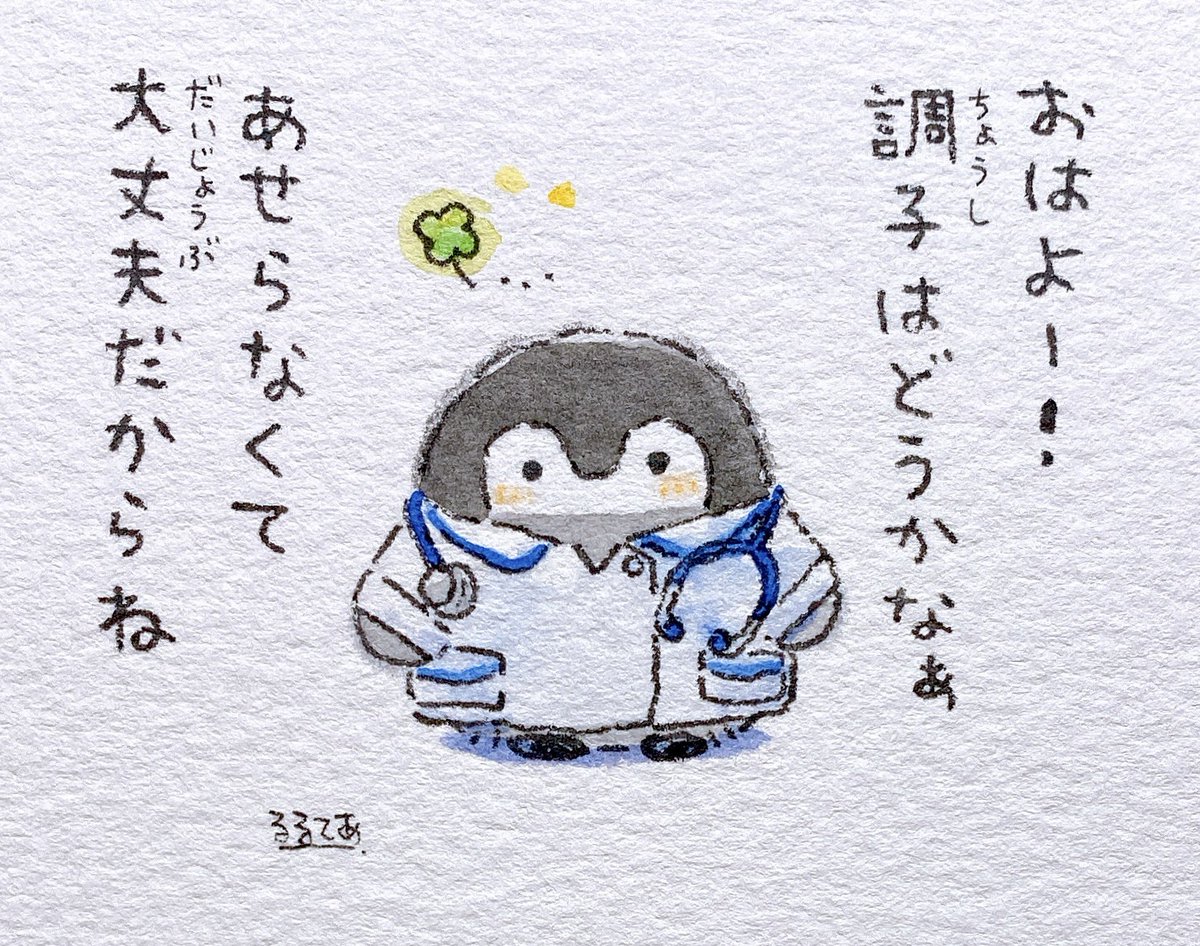 おはよー!
調子はどうかなぁ
ちょうし
あせらなくて
大丈夫だからね
だいじょうぶ
るるてあ